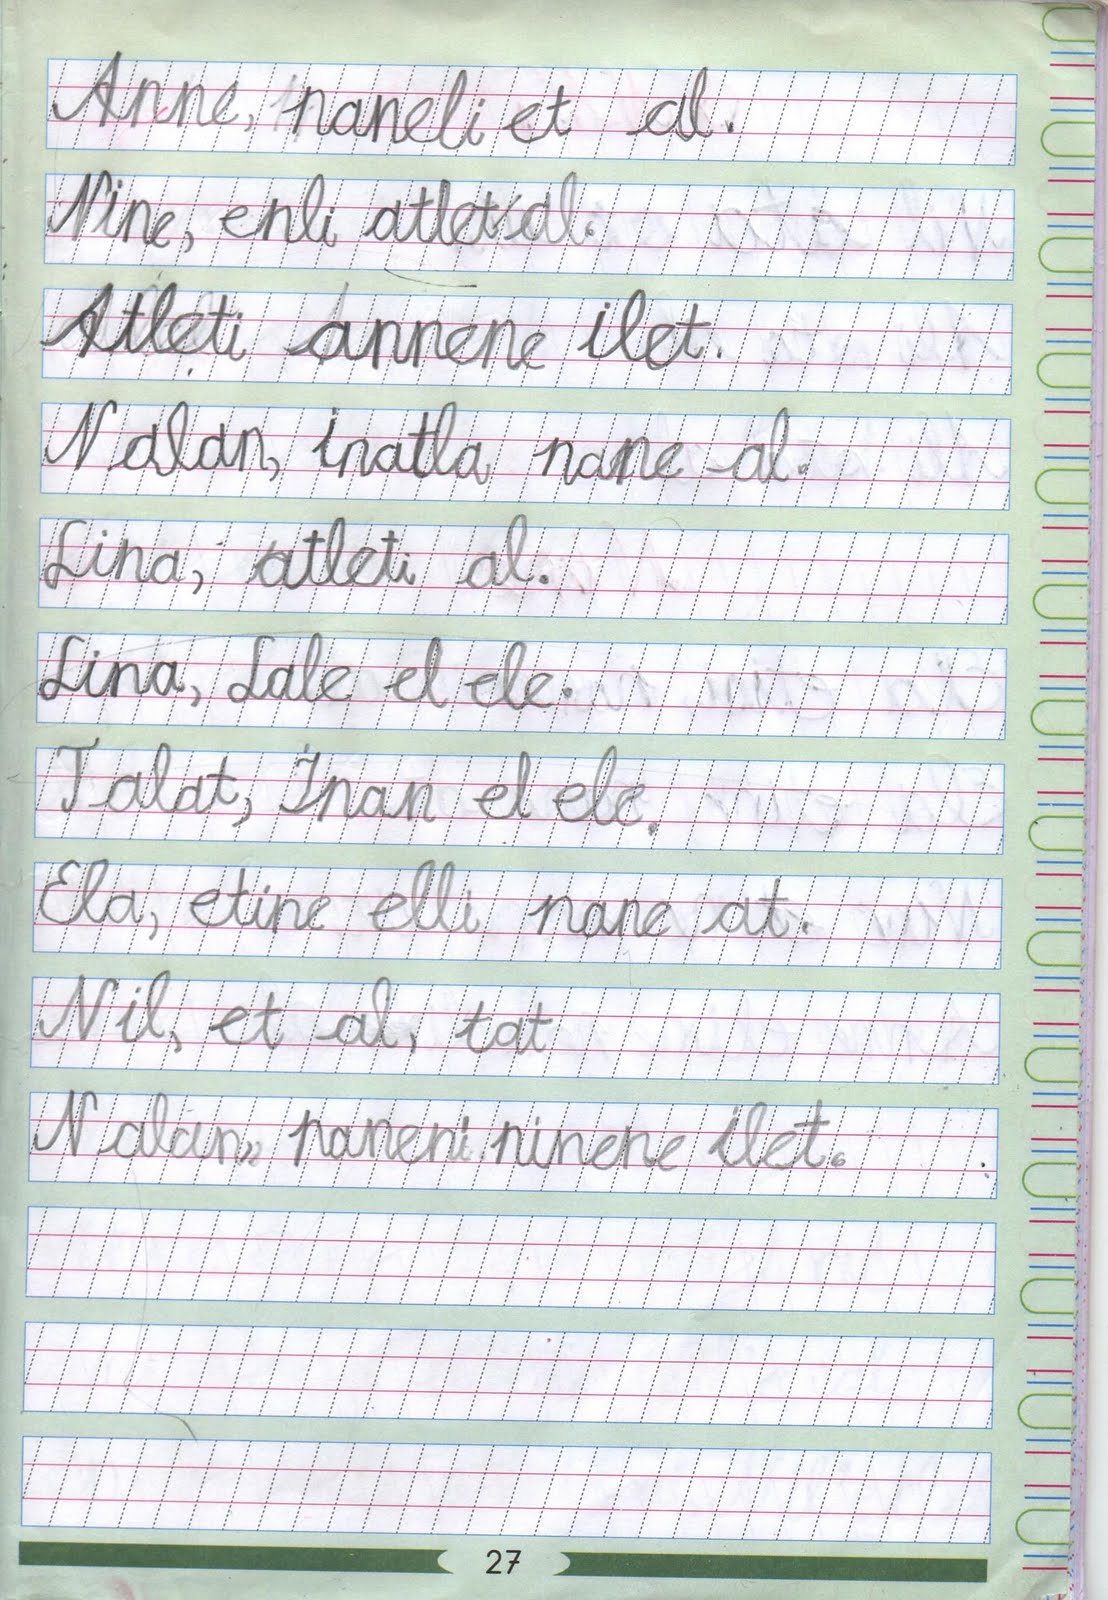 Anne, naneli et al.
Nine, enli atlet al.
Atleti annene ilet.
Nalan, inatla nane al.
Lina, atleti al.
Lina, Lale el ele.
Talat, İnan el ele.
Ela, etine elli nane at.
Nil, et al, tat
Nalan,, naneni ninene ilet.
27